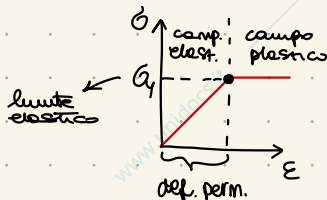 σ
camp. elast.
campo plastico
σy
limite elastico
ε
def. perm.